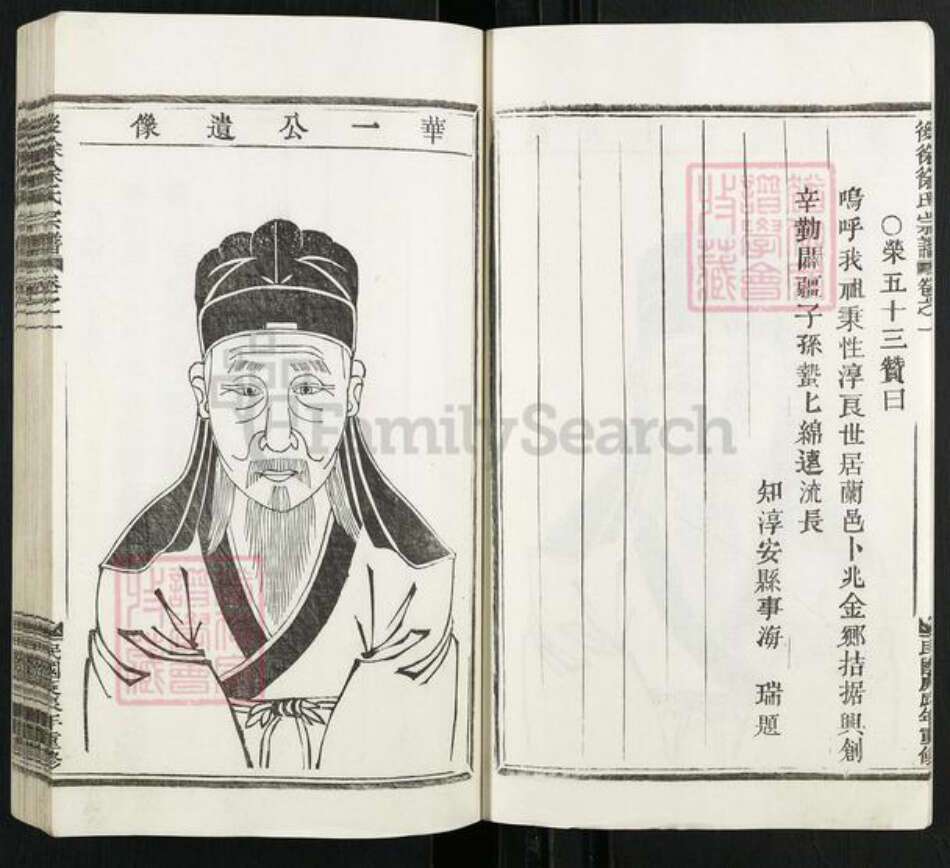 後徐徐氏宗譜 卷之一
○榮五十三贊曰
嗚呼我祖秉性淳良世居蘭邑卜兆金鄉拮据興創
辛勤闢疆子孫蟄匕綿遠流長
知淳安縣事海　瑞題
華一公遺像
FamilySearch